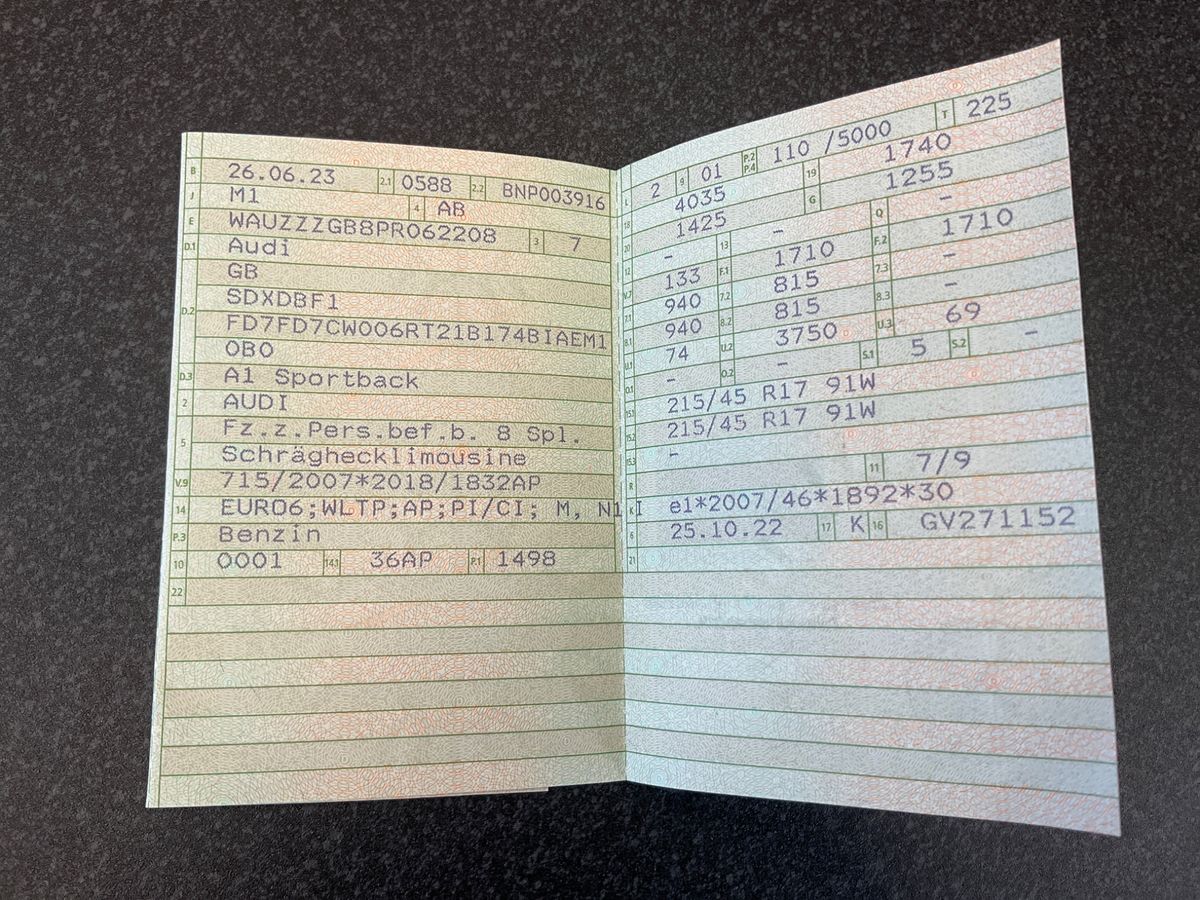 B 26.06.23 2.1 0588 2.2 BNP003916
J M1 4 AB
E WAUZZZGB8PR062208 3 7
D.1 Audi
GB
D.2 SDXDBF1
FD7FD7CW006RT21B174BIAEM1
0B0
D.3 A1 Sportback
2 AUDI
5 Fz.z.Pers.bef.b. 8 Spl.
Schräghecklimousine
V.9 715/2007*2018/1832AP
14 EURO6;WLTP;AP;PI/CI; M, N1 I
P.3 Benzin
10 0001 14.1 36AP P.1 1498
22
L 2 9 01 P.2 P.4 110 /5000 T 225
18 4035 19 1740
20 1425 G 1255
12 - 13 - Q -
V.7 133 F.1 1710 F.2 1710
7.1 940 7.2 815 7.3 -
8.1 940 8.2 815 8.3 -
U.1 74 U.2 3750 U.3 69
O.1 - O.2 - S.1 5 S.2 -
15.1 215/45 R17 91W
15.2 215/45 R17 91W
15.3 -
R 11 7/9
K e1*2007/46*1892*30
6 25.10.22 17 K 16 GV271152
21